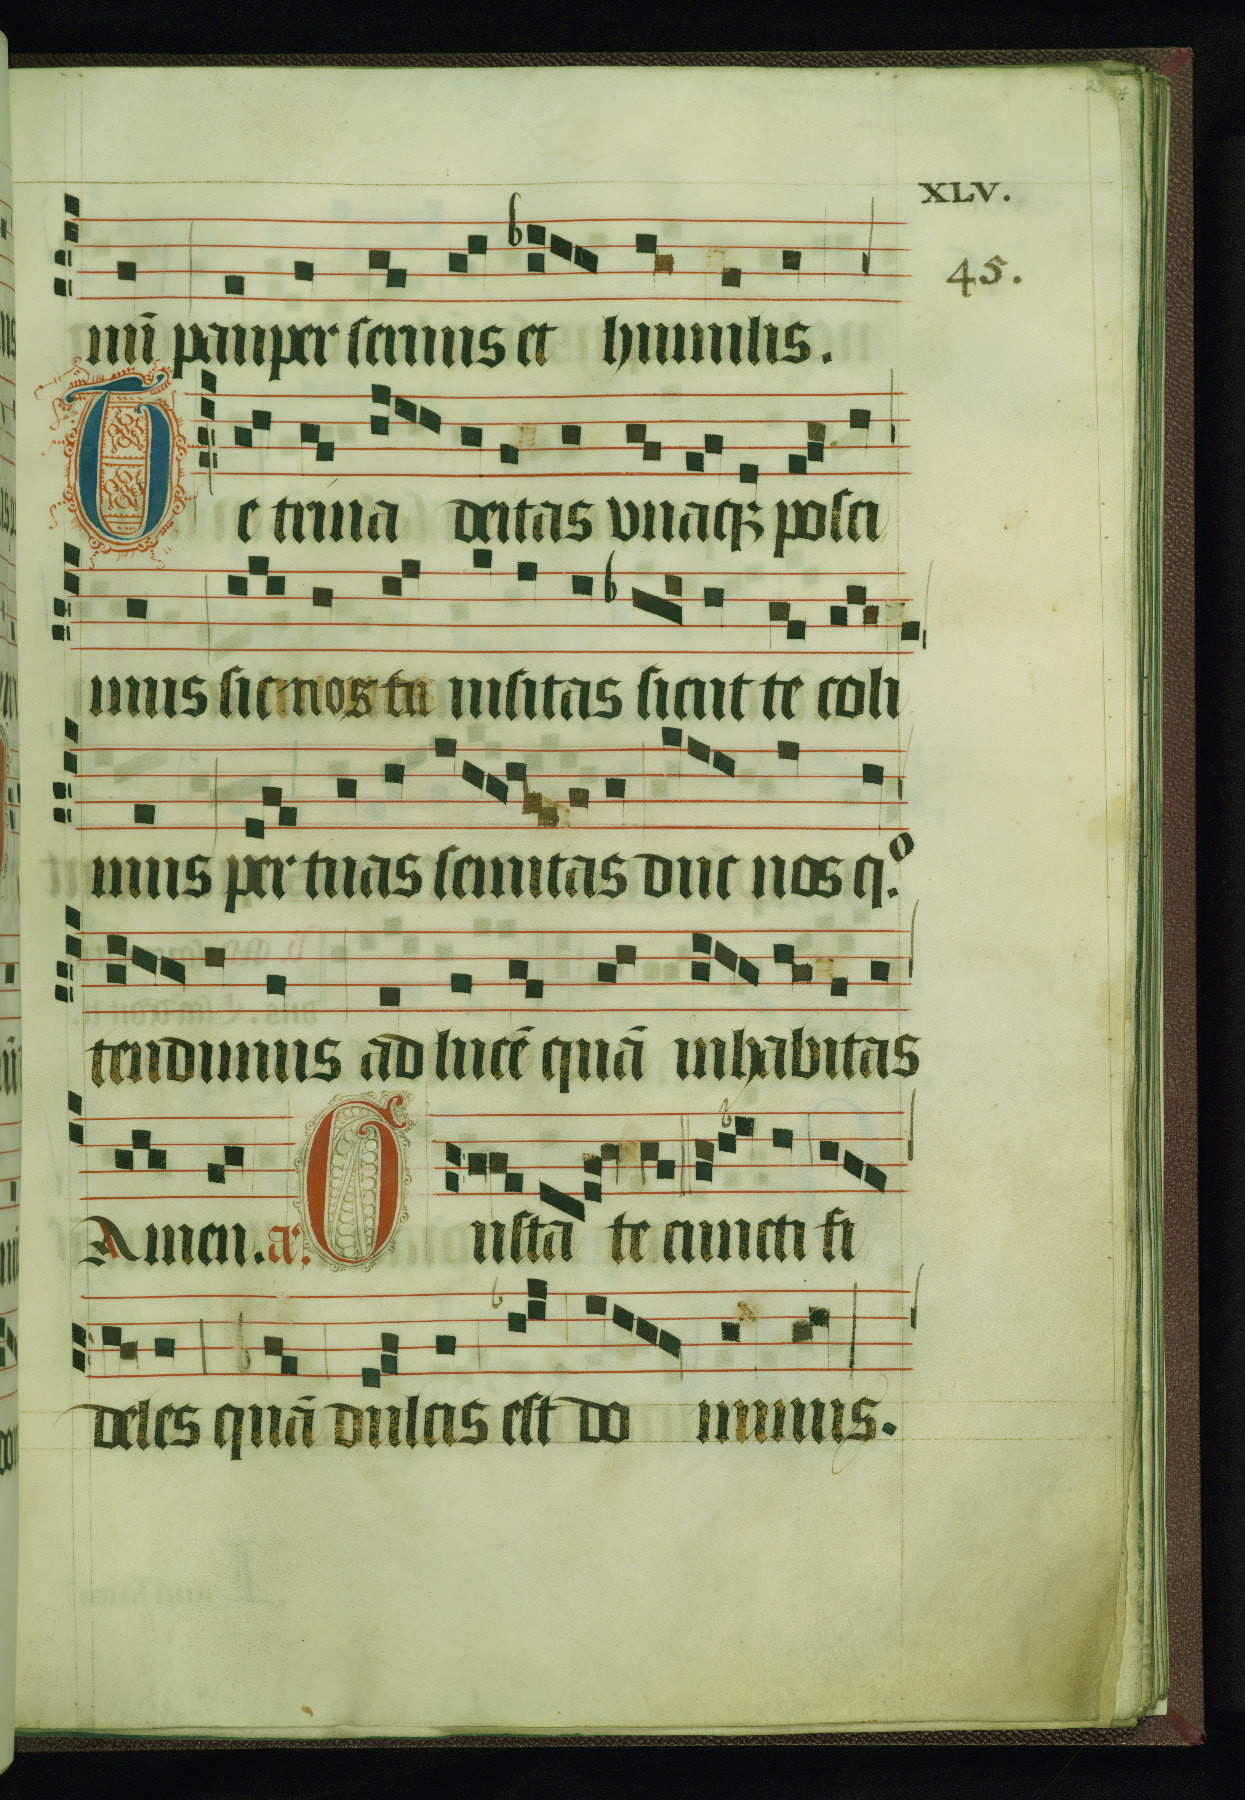 XLV.
45.
nū pauper servus et humilis.
Te trina deitas vnaqꝫ posci
mus sic nos tu visitas sicut te coli
mus per tuas semitas duc nos q.º
tendimus ad lucē quā inhabitas
Amen. a: Gusta te cuncti fi
deles quā dulcis est do minus.